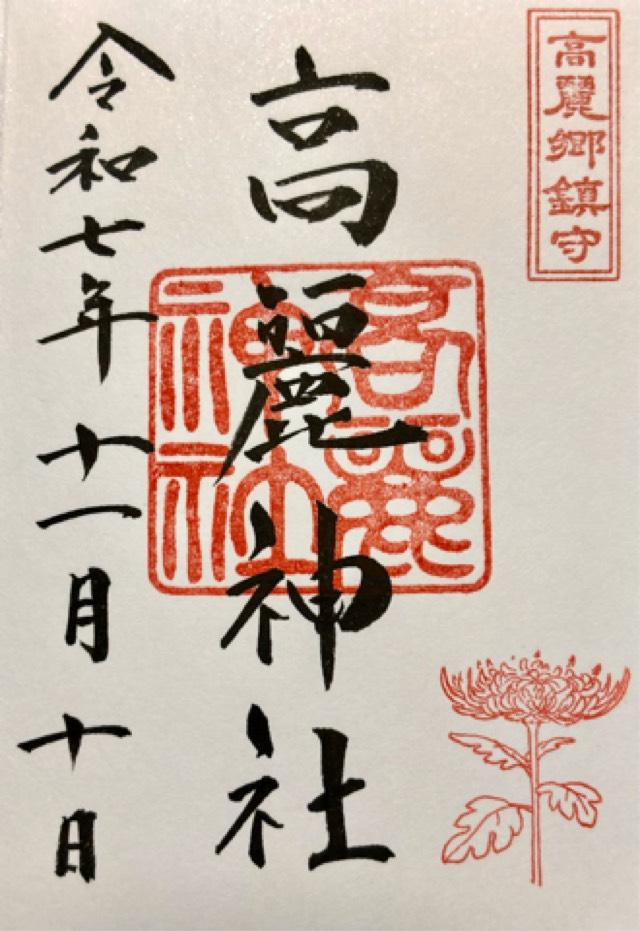 高麗郷鎮守
高麗神社
高麗神社
令和七年十一月十日